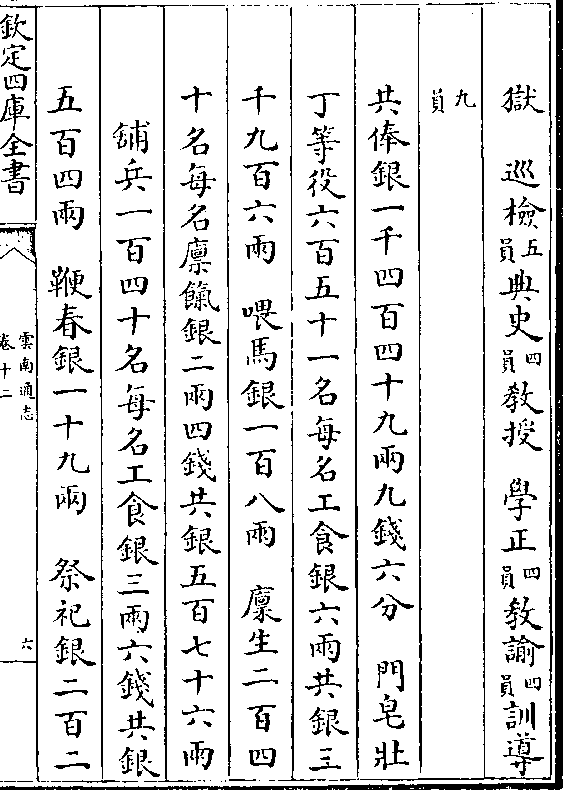 獄　巡檢五員典史四員教授　學正四員教諭四員訓導
九員
共俸銀一千四百四十九兩九錢六分　門皂壯
丁等役六百五十一名每名工食銀六兩共銀三
千九百六兩　喂馬銀一百八兩　廪生二百四
十名每名廪餼銀二兩四錢共銀五百七十六兩
鋪兵一百四十名每名工食銀三兩六錢共銀
五百四兩　鞭春銀一十九兩　祭祀銀二百二
欽定四庫全書
雲南通志
卷十二
六